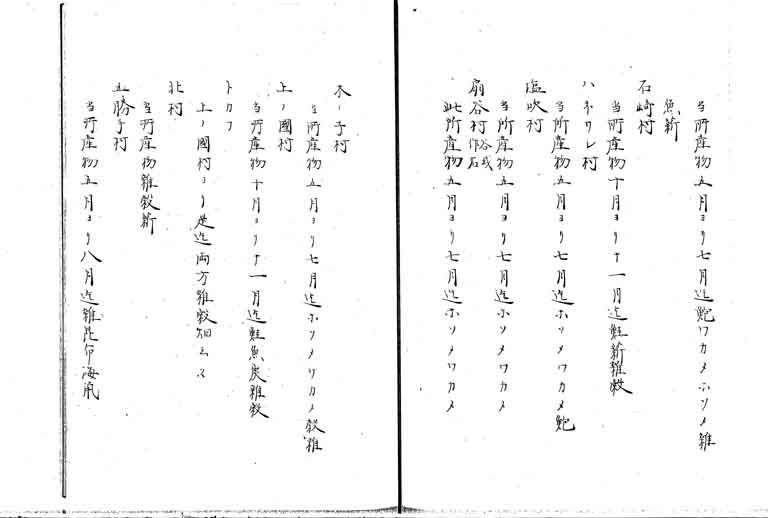 当所産物五月ヨリ七月迄鮑ワカメホソメ雑
魚薪
石崎村
当所産物十月ヨリ十一月迄鮭薪雑穀
ハネワレ村
当所産物五月ヨリ七月迄ホソメワカメ鮑
塩吹村
当所産物五月ヨリ七月迄ホソメワカメ
扇谷村 谷或作石
此所産物五月ヨリ七月迄ホソメワカメ
木ノ子村
当所産物五月ヨリ七月迄ホソメワカメ穀雑
上ノ國村
当所産物十月ヨリ十一月迄鮭魚炭雑穀
トカフ
上ノ國村ヨリ是迄両方雑穀畑ニス
北村
当所産物雑穀薪
五勝手村
当所産物五月ヨリ八月迄雑昆布海